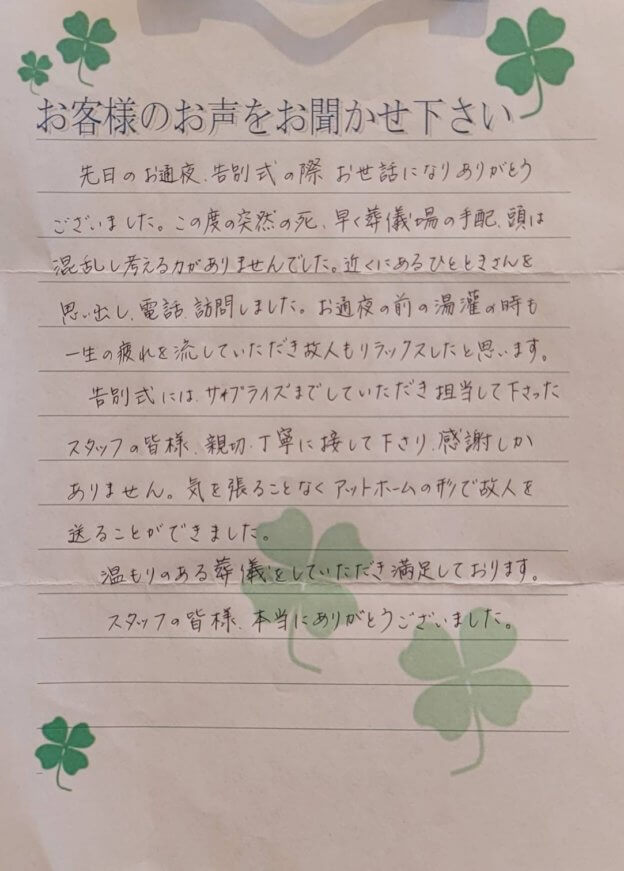 お客様のお声をお聞かせ下さい
先日のお通夜、告別式の際 お世話になりありがとう
ございました。この度の突然の死、早く葬儀場の手配、頭は
混乱し考える力がありませんでした。近くにあるひとときさんを
思い出し、電話、訪問しました。お通夜の前の湯灌の時も
一生の疲れを流していただき故人もリラックスしたと思います。
告別式には、サプライズまでしていただき 担当して下さった
スタッフの皆様、親切、丁寧に接して下さり、感謝しか
ありません。気を張ることなくアットホームの形で故人を
送ることができました。
温もりのある葬儀をしていただき満足しております。
スタッフの皆様、本当にありがとうございました。